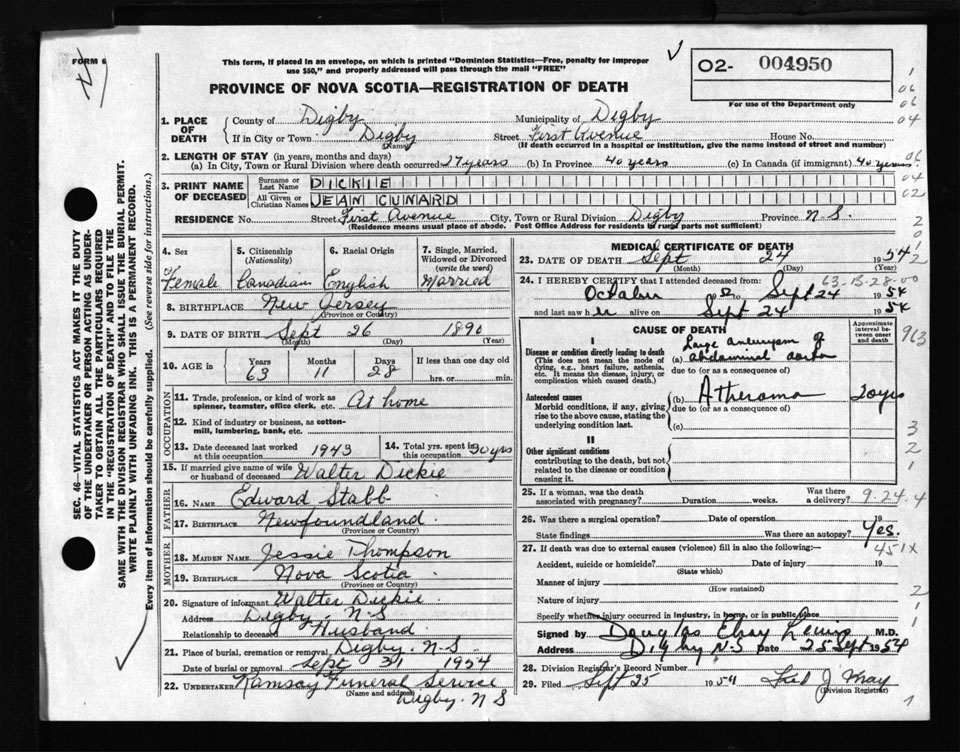 FORM 6
This form, if placed in an envelope, on which is printed "Dominion Statistics—Free, penalty for improper
use $50," and properly addressed will pass through the mail "FREE"
PROVINCE OF NOVA SCOTIA—REGISTRATION OF DEATH
02- 004950
For use of the Department only
1. PLACE OF DEATH
County of Digby Municipality of Digby
If in City or Town Digby Street First Avenue House No.
(Name) (If death occurred in a hospital or institution, give the name instead of street and number)
2. LENGTH OF STAY (in years, months and days)
(a) In City, Town or Rural Division where death occurred 27 years (b) In Province 40 years (c) In Canada (if immigrant) 40 years
3. PRINT NAME OF DECEASED
Surname or Last Name DICKIE
All Given or Christian Names JEAN CUNARD
RESIDENCE No. Street First Avenue City, Town or Rural Division Digby Province N-S.
(Residence means usual place of abode. Post Office Address for residents in rural parts not sufficient)
4. Sex Female
5. Citizenship (Nationality) Canadian
6. Racial Origin English
7. Single, Married, Widowed or Divorced (write the word) Married
8. BIRTHPLACE New Jersey
(Province or Country)
9. DATE OF BIRTH Sept 26 1890
(Month) (Day) (Year)
10. AGE in Years 63 Months 11 Days 28 If less than one day old hrs. or min.
OCCUPATION
11. Trade, profession, or kind of work as spinner, teamster, office clerk, etc. At home
12. Kind of industry or business, as cotton-mill, lumbering, bank, etc.
13. Date deceased last worked at this occupation 1943
14. Total yrs. spent in this occupation 30 yrs
15. If married give name of wife or husband of deceased Walter Dickie
FATHER
16. NAME Edward Stabb
17. BIRTHPLACE Newfoundland
(Province or Country)
MOTHER
18. MAIDEN NAME Jessie Thompson
19. BIRTHPLACE Nova Scotia
(Province or Country)
20. Signature of informant Walter Dickie
Address Digby, N S
Relationship to deceased Husband
21. Place of burial, cremation or removal Digby. N-S
Date of burial or removal Sept 31 1954
22. UNDERTAKER Ramsay Funeral Service
(Name and address)
Digby. N S
MEDICAL CERTIFICATE OF DEATH
23. DATE OF DEATH Sept 24 1954
(Month) (Day) (Year)
24. I HEREBY CERTIFY that I attended deceased from:
63-B-28-00
October to Sept 24 1954
and last saw her alive on Sept 24 1954
CAUSE OF DEATH
Approximate interval between onset and death
I
Disease or condition directly leading to death
(This does not mean the mode of dying, e.g., heart failure, asthenia, etc. It means the disease, injury, or complication which caused death.)
(a) Large aneurysm of abdominal aorta
due to (or as a consequence of)
963
Antecedent causes
Morbid conditions, if any, giving rise to the above cause, stating the underlying condition last.
(b) Atheroma 20 yrs
due to (or as a consequence of)
(c)
II
Other significant conditions
contributing to the death, but not related to the disease or condition causing it.
25. If a woman, was the death associated with pregnancy? Duration weeks. Was there a delivery?
9.24.4
26. Was there a surgical operation? Date of operation 19
State findings Was there an autopsy? Yes.
27. If death was due to external causes (violence) fill in also the following:—
451X
Accident, suicide or homicide? Date of injury 19
(State which)
Manner of injury
(How sustained)
Nature of injury
Specify whether injury occurred in industry, in home, or in public place
Signed by Douglas Ebay Lewis M.D.
Address Digby N-S Date 25 Sept 1954
28. Division Registrar's Record Number
29. Filed Sept 25 1954 Fred J May
(Division Registrar)
SEC. 46—VITAL STATISTICS ACT MAKES IT THE DUTY
OF THE UNDERTAKER OR PERSON ACTING AS UNDER-
TAKER TO OBTAIN ALL THE PARTICULARS REQUIRED
IN THE "REGISTRATION OF DEATH" AND TO FILE THE
SAME WITH THE DIVISION REGISTRAR WHO SHALL ISSUE THE BURIAL PERMIT.
WRITE PLAINLY WITH UNFADING INK. THIS IS A PERMANENT RECORD.
Every item of information should be carefully supplied. (See reverse side for instructions.)